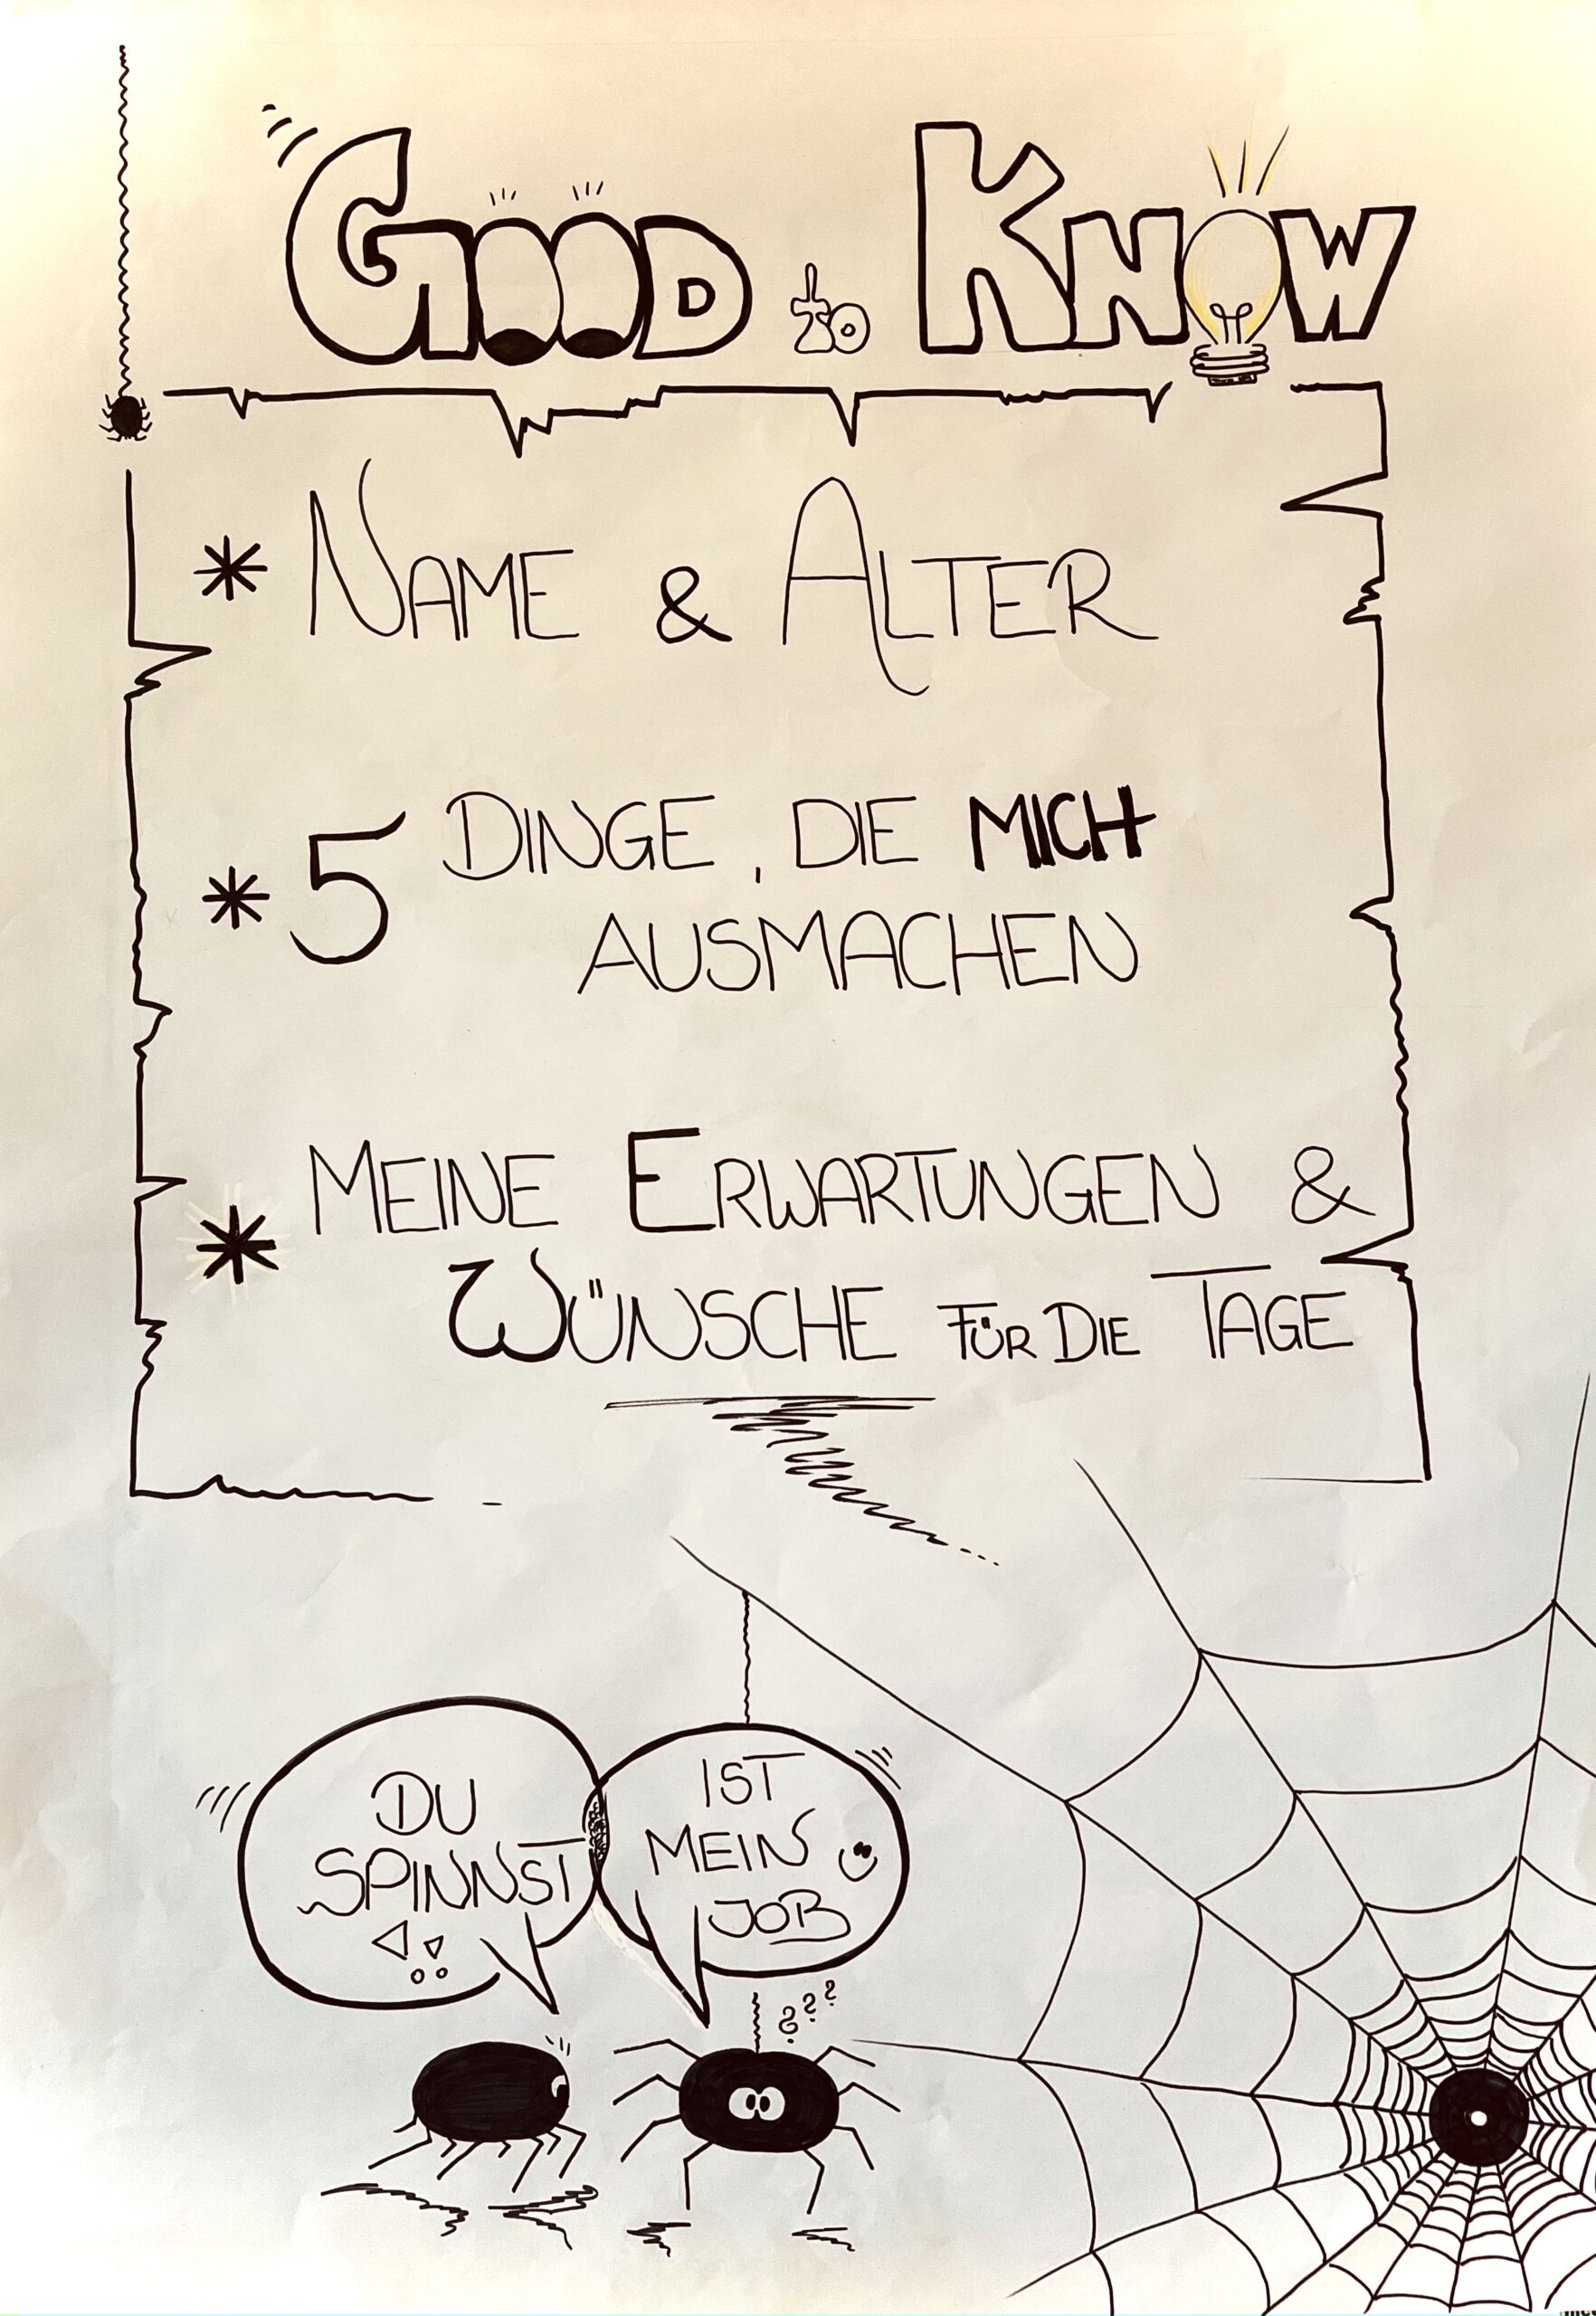 GOOD to KNOW
* NAME & ALTER
* 5 DINGE, DIE MICH
AUSMACHEN
* MEINE ERWARTUNGEN &
WÜNSCHE FÜR DIE TAGE
DU
SPINNST
!!
IST
MEIN
JOB
???